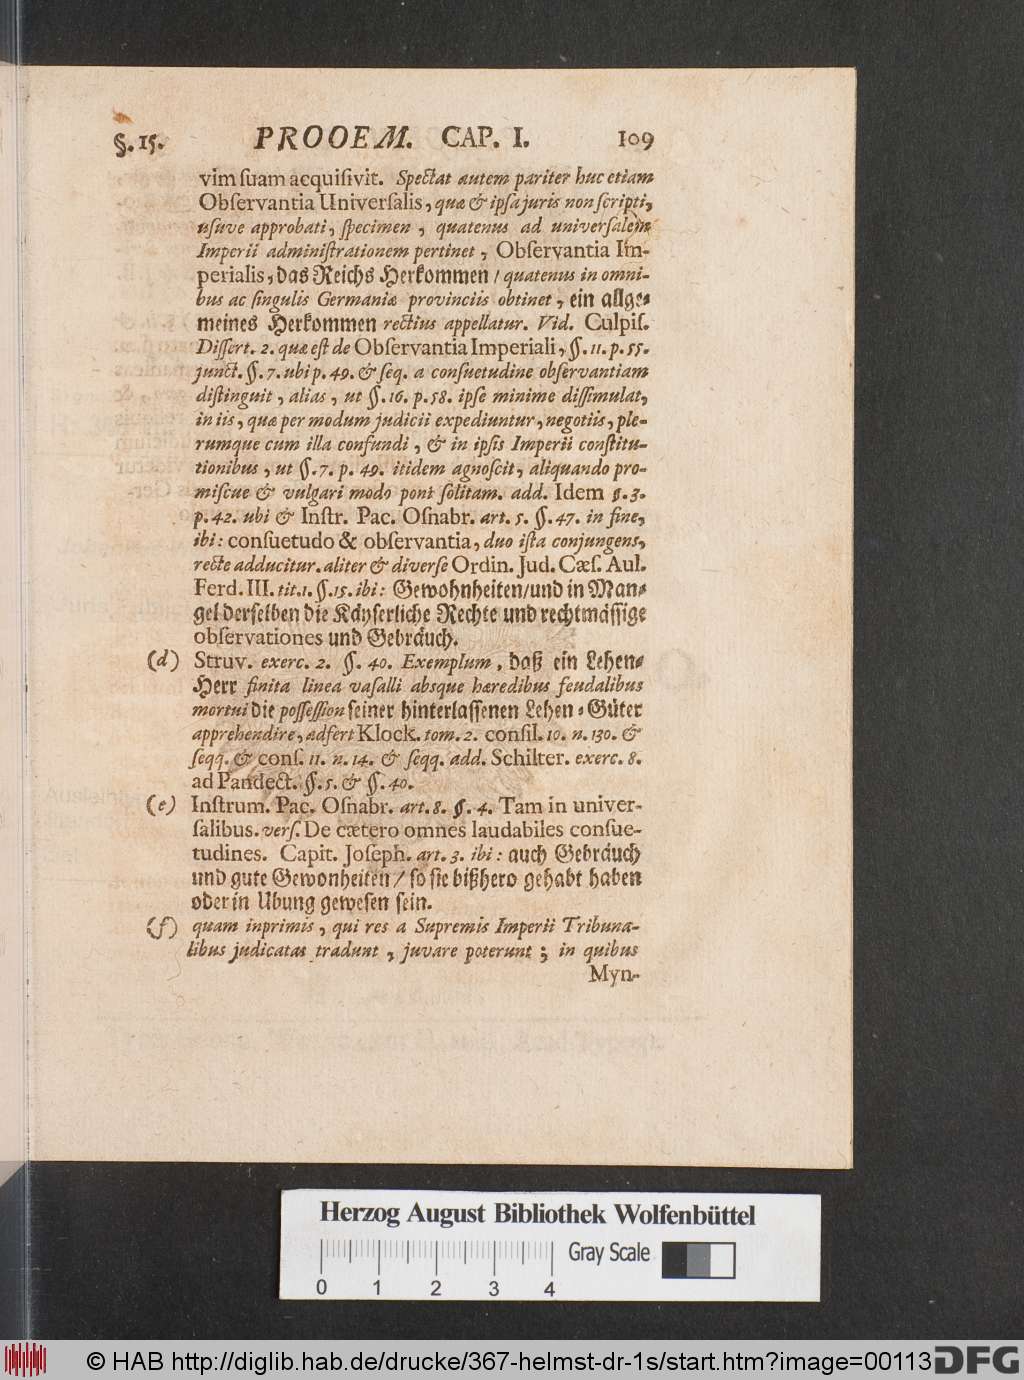 §. 15. PROOEM. CAP. I. 109
vim ſuam acquiſivit. Spectat autem pariter huc etiam
Obſervantia Univerſalis, quæ & ipſa juris non ſcripti,
uſuve approbati, ſpecimen, quatenus ad univerſalem
Imperii adminiſtrationem pertinet, Obſervantia Im-
perialis, das Reichs Herkommen / quatenus in omni-
bus ac ſingulis Germaniæ provinciis obtinet, ein allge-
meines Herkommen rectius appellatur. Vid. Culpiſ.
Diſſert. 2. quæ eſt de Obſervantia Imperiali, §. 11. p. 55.
junct. §. 7. ubi p. 49. & ſeq. a conſuetudine obſervantiam
diſtinguit, alias, ut §. 16. p. 58. ipſe minime diſſimulat,
in iis, quæ per modum judicii expediuntur, negotiis, ple-
rumque cum illa confundi, & in ipſis Imperii conſtitu-
tionibus, ut §. 7. p. 49. itidem agnoſcit, aliquando pro-
miſcue & vulgari modo poni ſolitam. add. Idem §. 3.
p. 42. ubi & Inſtr. Pac. Oſnabr. art. 5. §. 47. in fine,
ibi: conſuetudo & obſervantia, duo iſta conjungens,
recte adducitur. aliter & diverſe Ordin. Jud. Cæſ. Aul.
Ferd. III. tit. 1. §. 15. ibi: Gewohnheiten / und in Man-
gel derſelben die Käyſerliche Rechte und rechtmäſſige
obſervationes und Gebräuch.
(d) Struv. exerc. 2. §. 40. Exemplum, daß ein Lehen-
Herr finita linea vaſalli absque hæredibus feudalibus
mortui die poſſeſſion ſeiner hinterlaſſenen Lehen-Güter
apprehendire, adfert Klock. tom. 2. conſil. 10. n. 130. &
ſeqq. & conſ. 11. n. 14. & ſeqq. add. Schilter. exerc. 8.
ad Pandect. §. 5. & §. 40.
(e) Inſtrum. Pac. Oſnabr. art. 8. §. 4. Tam in univer-
ſalibus. verſ. De cætero omnes laudabiles conſue-
tudines. Capit. Joſeph. art. 3. ibi: auch Gebräuch
und gute Gewonheiten / ſo ſie bißhero gehabt haben
oder in Ubung geweſen ſein.
(f) quam inprimis, qui res a Supremis Imperii Tribuna-
libus judicatas tradunt, juvare poterunt; in quibus
Myn-
Herzog August Bibliothek Wolfenbüttel
Gray Scale
0 1 2 3 4
© HAB http://diglib.hab.de/drucke/367-helmst-dr-1s/start.htm?image=00113 DFG